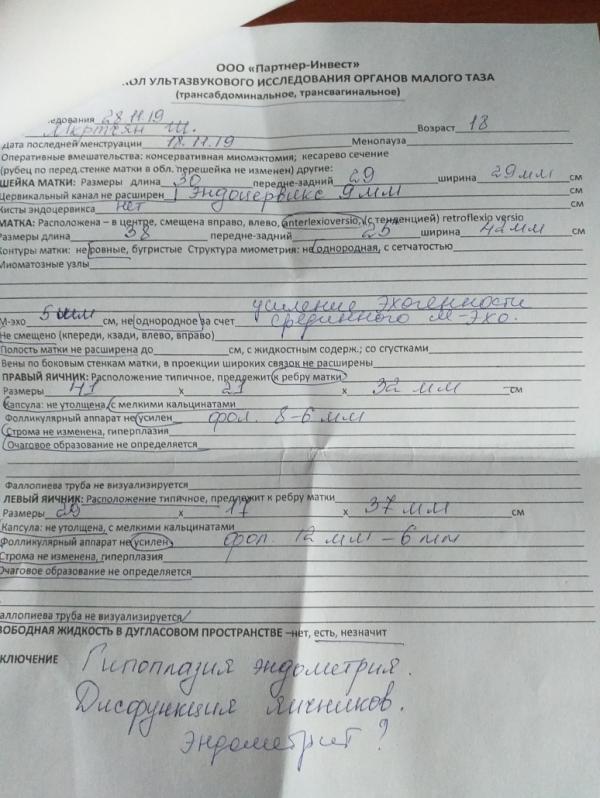 ООО «Партнер-Инвест»
КОЛ УЛЬТАЗВУКОВОГО ИССЛЕДОВАНИЯ ОРГАНОВ МАЛОГО ТАЗА
(трансабдоминальное, трансвагинальное)
едования 28.11.19
Мкртчян Ш. Возраст 18
Дата последней менструации 18.11.19 Менопауза
Оперативные вмешательства: консервативная миомэктомия; кесарево сечение
(рубец по перед.стенке матки в обл. перешейка не изменен) другие:
ШЕЙКА МАТКИ: Размеры длина 30 передне-задний 29 ширина 29 мм см
Цервикальный канал не расширен Эндоцервикс 9 мм см
Кисты эндоцервикса нет
МАТКА: Расположена – в центре, смещена вправо, влево, anterlexioversio, (с тенденцией) retroflexio versio
Размеры длина 38 передне-задний 25 ширина 42 мм см
Контуры матки: не ровные, бугристые Структура миометрия: не однородная, с сетчатостью
Миоматозные узлы
М-эхо 5 мм см, не однородное за счет усиление эхогенности
срединного М-Эхо.
Не смещено (кпереди, кзади, влево, вправо)
Полость матки не расширена до см, с жидкостным содерж.; со сгустками
Вены по боковым стенкам матки, в проекции широких связок не расширены
ПРАВЫЙ ЯИЧНИК: Расположение типичное, предлежит к ребру матки
Размеры 41 х 21 х 32 мм см
Капсула: не утолщена, с мелкими кальцинатами
Фолликулярный аппарат не усилен фол. 8-6 мм
Строма не изменена, гиперплазия
Очаговое образование не определяется
Фаллопиева труба не визуализируется
ЛЕВЫЙ ЯИЧНИК: Расположение типичное, предлежит к ребру матки
Размеры 29 х 17 х 37 мм см
Капсула: не утолщена, с мелкими кальцинатами
Фолликулярный аппарат не усилен фол. 12 мм - 6 мм
Строма не изменена, гиперплазия
Очаговое образование не определяется
аллопиева труба не визуализируется
ВОБОДНАЯ ЖИДКОСТЬ В ДУГЛАСОВОМ ПРОСТРАНСТВЕ –нет, есть, незначит
КЛЮЧЕНИЕ Гипоплазия эндометрия.
Дисфункция яичников.
Эндометрит?